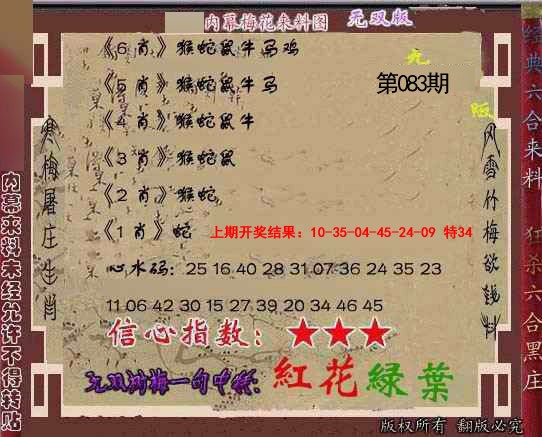 内幕梅花来料图 无双版
《6 肖》猴蛇鼠牛马鸡
《5 肖》猴蛇鼠牛马
第083期
《4 肖》猴蛇鼠牛
《3 肖》猴蛇鼠
《2 肖》猴蛇
《1 肖》蛇
上期开奖结果：10-35-04-45-24-09 特34
心水码：25 16 40 28 31.07 36 24 35 23
11 06 42 30 15 27 39 20 34 46 45
信心指数：★★★
一句中特：紅花緑葉
版权所有 翻版必究
寒梅屠庄生肖
风雪竹梅欲钱料
内幕来料未经允许不得转贴
经典六合来料
狂杀六合黑庄